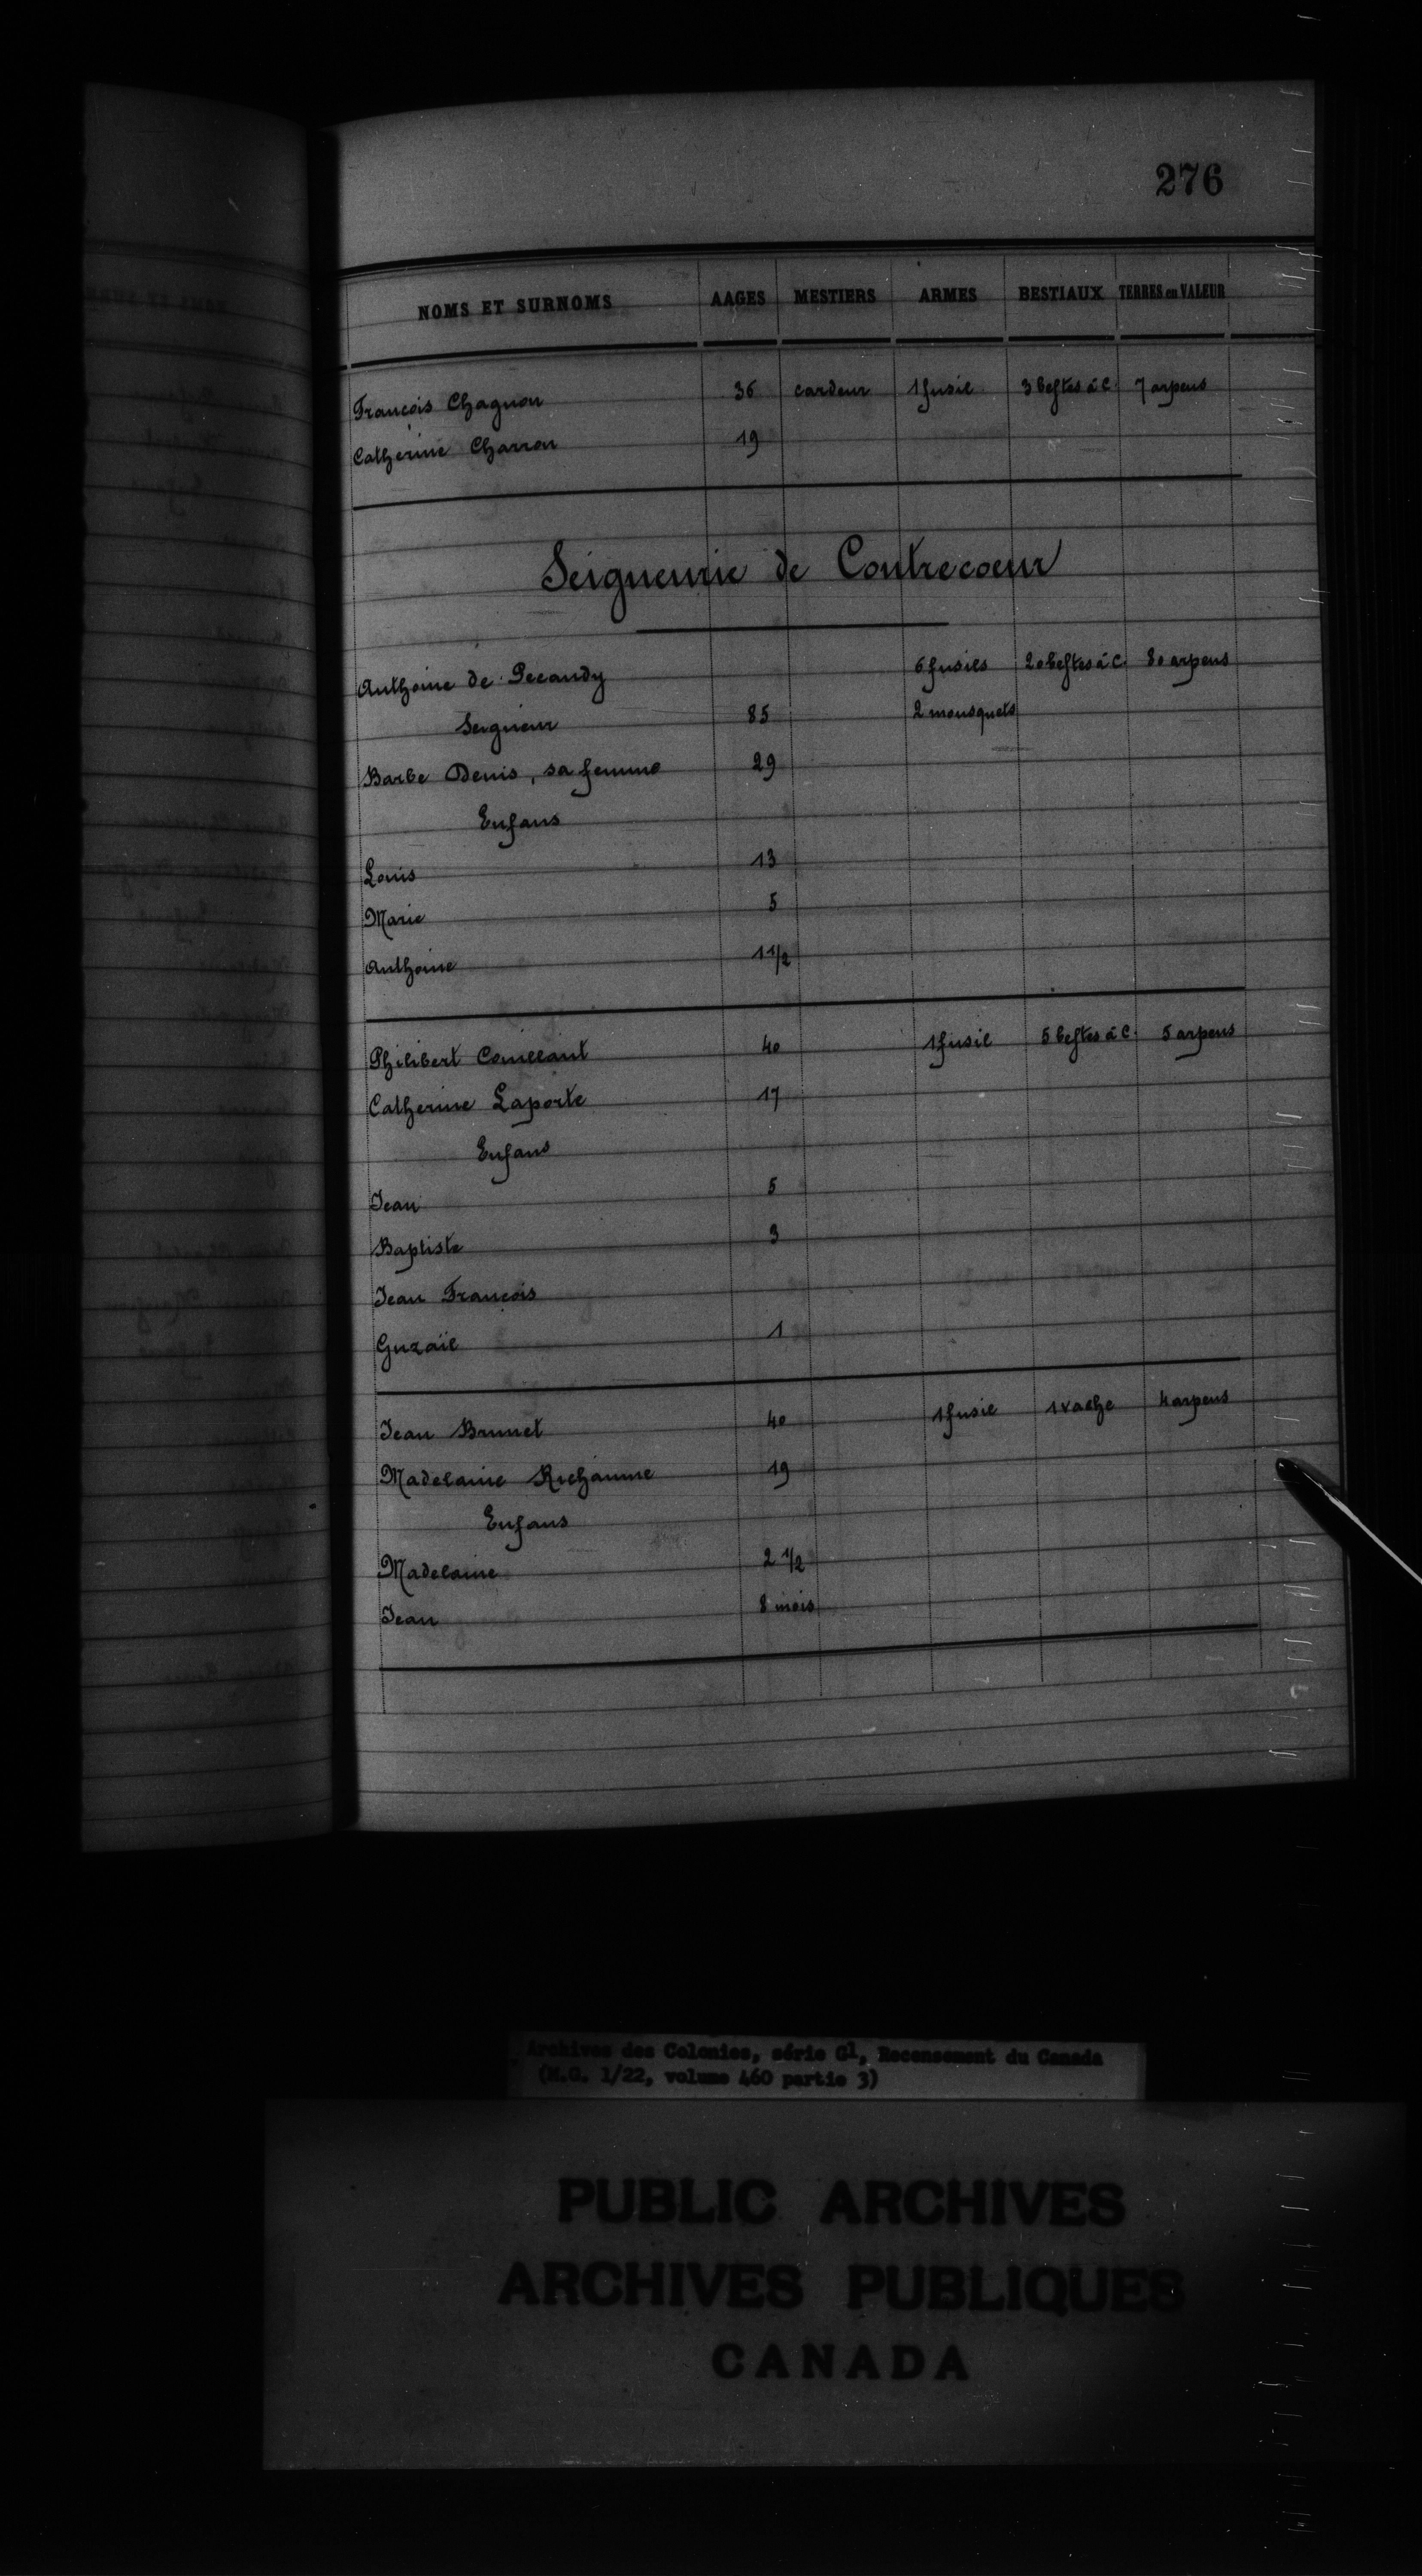 276
NOMS ET SURNOMS AAGES MESTIERS ARMES BESTIAUX TERRES en VALEUR
Francois Chagnon 36 cardeur 1 fusil 3 bestes à C. 7 arpens
Catherine Charron 19
Seigneurie de Contrecoeur
Anthoine de Pecaudy 6 fusils 20 bestes à C. 80 arpens
Seigneur 85 2 mousquets
Barbe Denis, sa femme 29
Enfans
Louis 13
Marie 5
Anthoine 1 1/2
Philibert Couillaut 40 1 fusil 5 bestes à C. 5 arpens
Catherine Laporte 17
Enfans
Jean 5
Baptiste 3
Jean Francois
Guzaïl 1
Jean Brunet 40 1 fusil 1 vache 4 arpens
Madelaine Richaume 19
Enfans
Madelaine 2 1/2
Jean 8 mois
Archives des Colonies, série G1, Recensement du Canada
(M.G. 1/22, volume 460 partie 3)
PUBLIC ARCHIVES
ARCHIVES PUBLIQUES
CANADA